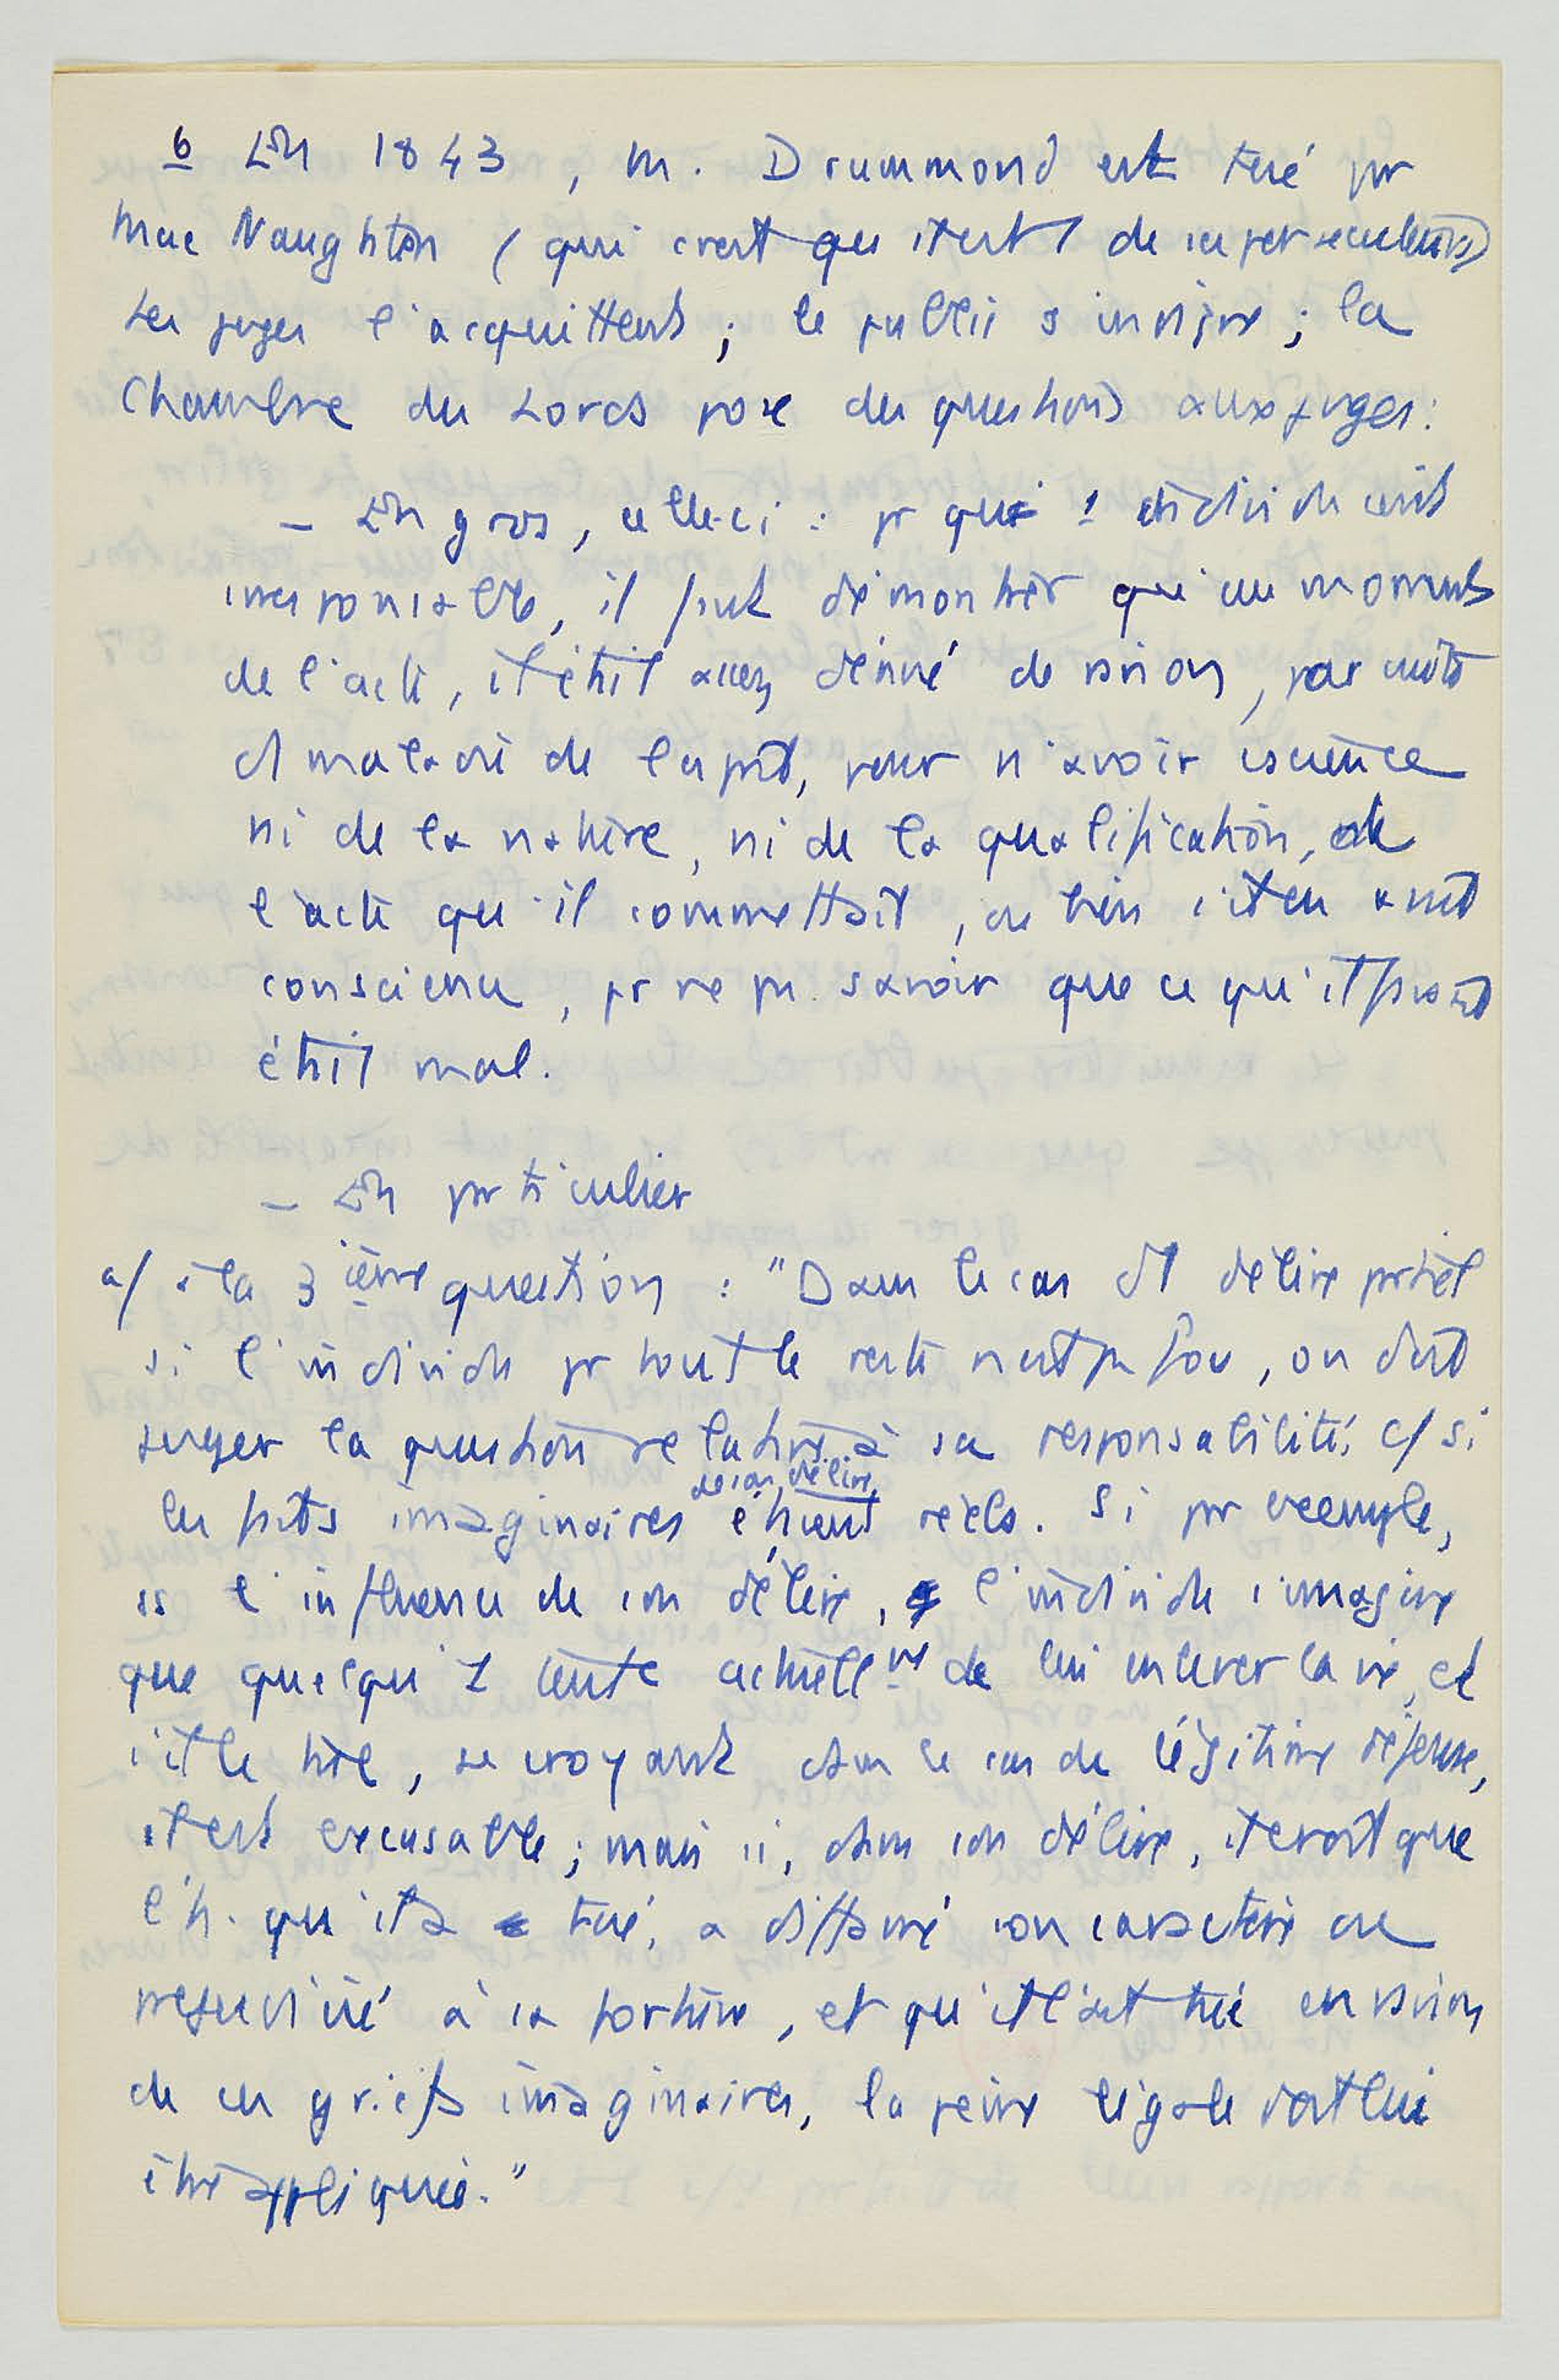 6 En 1843, M. Drummond est tué pr
Mac Naughton (qui croit que c'est 1 de ses persécuteurs)
Les juges l'acquittent ; le public s'indigne ; la
Chambre des Lords pose des questions aux juges :
– En gros, celle-ci : pr qu' 1 individu soit
irresponsable, il faut démontrer qu'au moment
de l'acte, il était assez dénué de raison, par suite
d'1 maladie de l'esprit, pour n'avoir cscience
ni de la nature, ni de la qualification, de
l'acte qu'il commettait, ou bien s'il en avait
conscience, pr ne pas savoir que ce qu'il faisait
était mal.
– En particulier
a/ à la 3ième question : "Dans le cas d'1 délire partiel
si l'individu pr tout le reste n'est pas fou, on doit
juger la question relative à sa responsabilité, c/ si
les faits imaginaires de son délire étaient réels. Si pr exemple,
ss l'influence de son délire, l'individu s'imagine
que quelqu'1 tente actuellmt de lui enlever la vie, et
s'il le tue, se croyant dans le cas de légitime défense,
il est excusable ; mais si, dans son délire, il croit que
l'h. qu'il a tué, a diffamé son caractère ou
préjudicié à sa fortune, et qu'il l'ait tué en raison
de ces griefs imaginaires, la peine légale doit lui
être appliquée."